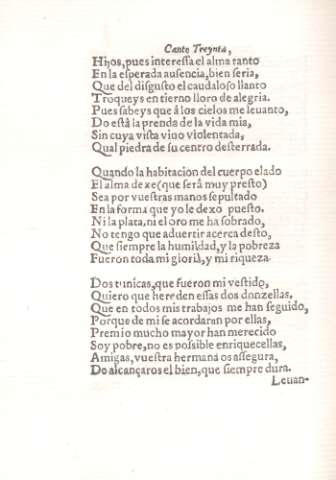 Canto Treynta,
Hijos, pues interessa el alma tanto
En la esperada ausencia, bien seria,
Que del disgusto el caudaloso llanto
Troqueys en tierno lloro de alegria.
Pues sabeys que â los cielos me leuanto,
Do està la prenda de la vida mia,
Sin cuya vista viuo violentada,
Qual piedra de su centro desterrada.
Quando la habitacion del cuerpo elado
El alma dexe (que serâ muy presto)
Sea por vuestras manos sepultado
En la forma que yo le dexo puesto.
Ni la plata, ni el oro me ha sobrado,
No tengo que aduertir acerca desto,
Que siempre la humildad, y la pobreza
Fueron toda mi gloria, y mi riqueza.
Dos tunicas, que fueron mi vestido,
Quiero que hereden essas dos donzellas,
Que en todos mis trabajos me han seguido,
Porque de mi se acordaran por ellas,
Premio mucho mayor han merecido
Soy pobre, no es possible enriquecellas,
Amigas, vuestra hermana os assegura,
Do alcançaros el bien, que siempre dura.
Leuan-